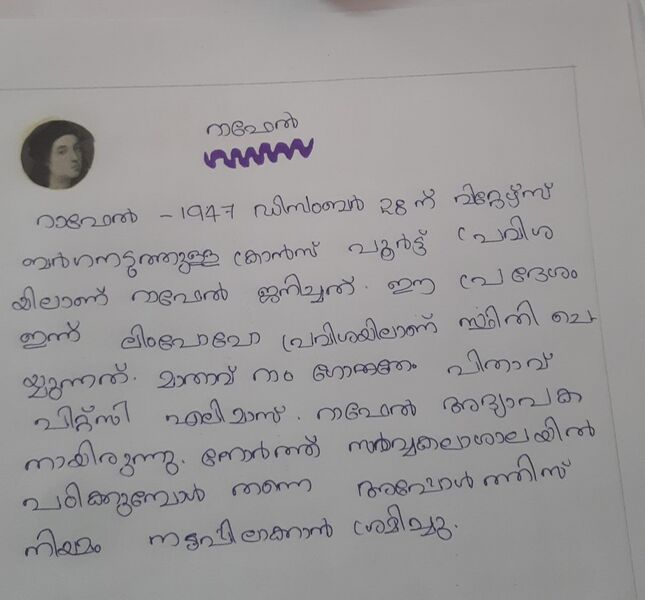 റാഫേൽ
റാഫേൽ - 1947 ഡിസംബർ 28 ന് വിറ്റേഴ്സ്
ബർഗനടുത്തുള്ള ക്രാൻസ് പൂർട്ട് പ്രവിശ
യിലാണ് റാഫേൽ ജനിച്ചത്. ഈ പ്രദേശം
ഇന്ന് ലിംപോപോ പ്രവിശയിലാണ് സ്ഥിതി ചെ
യ്യുന്നത്. മാതാവ് റാം പിതാവ്
പിറ്റ്സി ഏലിമാസ്. റാഫേൽ അദ്ധ്യാപക
നായിരുന്നു. നോർത്ത് സർവ്വകലാശാലയിൽ
പഠിക്കുമ്പോൾ തന്നെ
നിയമം നടപ്പിലാക്കാൻ ശ്രമിച്ചു.